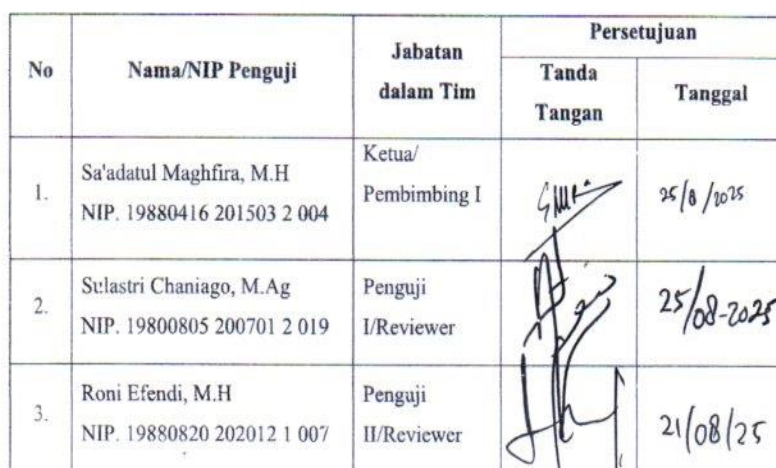 No
Nama/NIP Penguji
Jabatan
dalam Tim
Persetujuan
Tanda
Tangan
Tanggal
1.
Sa'adatul Maghfira, M.H
NIP. 19880416 201503 2 004
Ketua/
Pembimbing I
25/8/2025
2.
Sulastri Chaniago, M.Ag
NIP. 19800805 200701 2 019
Penguji
I/Reviewer
25/08-2025
3.
Roni Efendi, M.H
NIP. 19880820 202012 1 007
Penguji
II/Reviewer
21/08/25